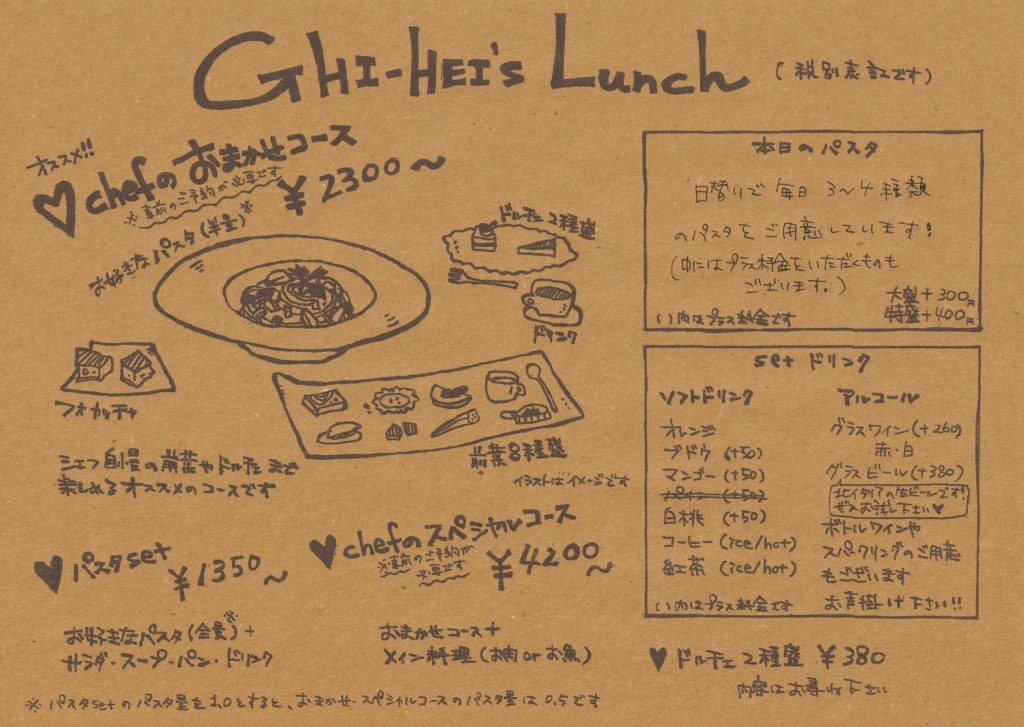 GHI-HEI's Lunch (税別表記です)
オススメ!!
♥chefのおまかせコース
※事前のご予約が必要です
¥2300〜
お好きなパスタ(半量)※
ドルチェ2種盛
ドリンク
フォカッチャ
前菜8種盛
イラストはイメージです
シェフ自慢の前菜やドルチェまで
楽しめるオススメのコースです
♥パスタset
¥1350〜
お好きなパスタ(全量)※+
サラダ・スープ・パン・ドリンク
♥chefのスペシャルコース
※事前のご予約が
必要です
¥4200〜
おまかせコース+
メイン料理(お肉orお魚)
※パスタsetのパスタ量を1.0とすると、おまかせ・スペシャルコースのパスタ量は0.5です
本日のパスタ
日替りで毎日3〜4種類
のパスタをご用意しています!
(中にはプラス料金をいただくものも
ございます。)
大盛+300円
特盛+400円
( )内はプラス料金です
setドリンク
ソフトドリンク
オレンジ
ブドウ(+50)
マンゴー(+50)
パイン(+50)
白桃(+50)
コーヒー(ice/hot)
紅茶(ice/hot)
( )内はプラス料金です
アルコール
グラスワイン(+260)
赤・白
グラスビール(+380)
北イタリアの生ビールです!
ぜひお試し下さい♥
ボトルワインや
スパークリングのご用意
もございます
お声掛け下さい!!
♥ドルチェ2種盛 ¥380
内容はお尋ね下さい